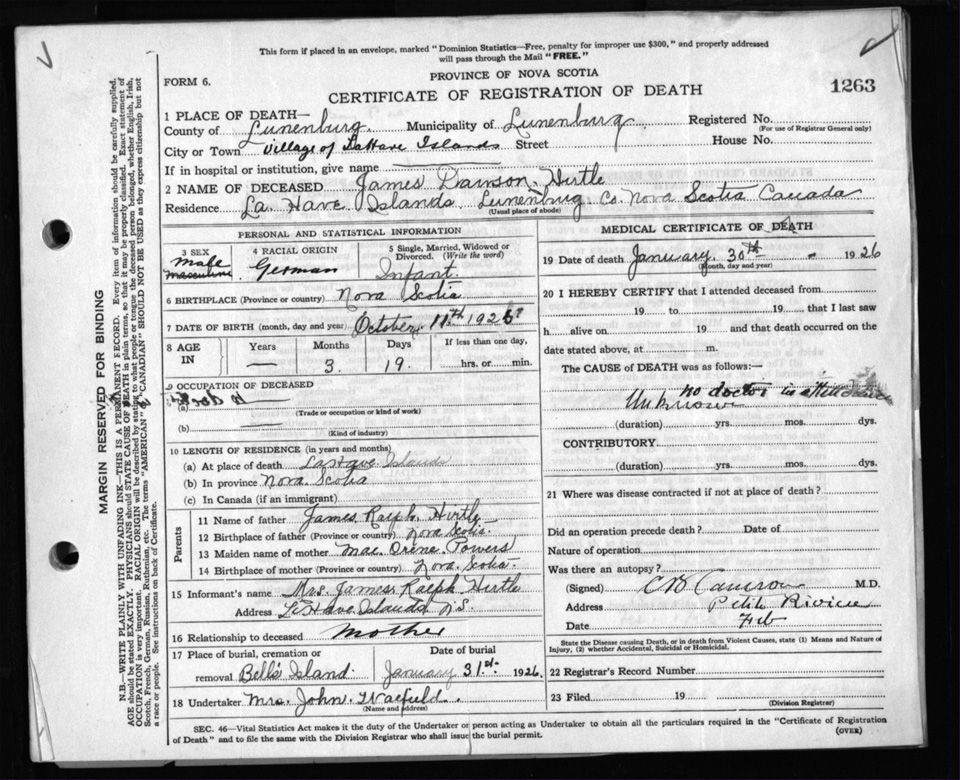 This form if placed in an envelope, marked "Dominion Statistics—Free, penalty for improper use $300," and properly addressed
will pass through the Mail "FREE."
PROVINCE OF NOVA SCOTIA
FORM 6.
CERTIFICATE OF REGISTRATION OF DEATH
1263
1 PLACE OF DEATH—
County of Lunenburg. Municipality of Lunenburg Registered No.
(For use of Registrar General only)
City or Town Village of LaHave Islands Street House No.
If in hospital or institution, give name
2 NAME OF DECEASED James Dawson Hirtle
Residence La Have Islands Lunenburg Co. Nova Scotia Canada
(Usual place of abode)
PERSONAL AND STATISTICAL INFORMATION
3 SEX Male masculine
4 RACIAL ORIGIN German
5 Single, Married, Widowed or Divorced. (Write the word) Infant.
6 BIRTHPLACE (Province or country) Nova Scotia
7 DATE OF BIRTH (month, day and year) October, 11th 192
8 AGE IN Years — Months 3. Days 19. If less than one day, hrs. or min.
9 OCCUPATION OF DECEASED
(a)
(Trade or occupation or kind of work)
(b)
(Kind of industry)
10 LENGTH OF RESIDENCE (in years and months)
(a) At place of death LaHave Islands
(b) In province Nova Scotia
(c) In Canada (if an immigrant)
Parents
11 Name of father James Ralph Hirtle
12 Birthplace of father (Province or country) Nova Scotia.
13 Maiden name of mother Mae Irene Powers
14 Birthplace of mother (Province or country) Nova Scotia.
15 Informant's name Mrs. James Ralph Hirtle
Address LaHave Islands N.S.
16 Relationship to deceased Mother
17 Place of burial, cremation or removal Bell's Island. Date of burial January 31st. 1926.
18 Undertaker Mrs. John
(Name and address)
MEDICAL CERTIFICATE OF DEATH
19 Date of death January. 30th - 1926
(Month, day and year)
20 I HEREBY CERTIFY that I attended deceased from
19 to 19 that I last saw
h alive on 19 and that death occurred on the
date stated above, at m.
The CAUSE of DEATH was as follows:—
no doctor in attendance
Unknown
(duration) yrs. mos. dys.
CONTRIBUTORY
(duration) yrs. mos. dys.
21 Where was disease contracted if not at place of death?
Did an operation precede death? Date of
Nature of operation
Was there an autopsy?
(Signed) M.D.
Address Petite Riviere
Date Feb
State the Disease causing Death, or in death from Violent Causes, state (1) Means and Nature of
Injury, (2) whether Accidental, Suicidal or Homicidal.
22 Registrar's Record Number
23 Filed 19
(Division Registrar)
SEC. 46—Vital Statistics Act makes it the duty of the Undertaker or person acting as Undertaker to obtain all the particulars required in the "Certificate of Registration
of Death" and to file the same with the Division Registrar who shall issue the burial permit.
(OVER)
MARGIN RESERVED FOR BINDING
N.B.—WRITE PLAINLY WITH UNFADING INK—THIS IS A PERMANENT RECORD. Every item of information should be carefully supplied.
AGE should be stated EXACTLY. PHYSICIANS should STATE CAUSE OF DEATH in plain terms, so that it may be properly classified. Exact statement of
OCCUPATION is very important. RACIAL ORIGIN will be described by stating to what people or tongue the deceased person belonged, whether English, Irish,
Scotch, French, German, Russian, Ruthenian, etc. The terms "AMERICAN" or "CANADIAN" SHOULD NOT BE USED as they express citizenship but not
a race or people. See instructions on back of Certificate.